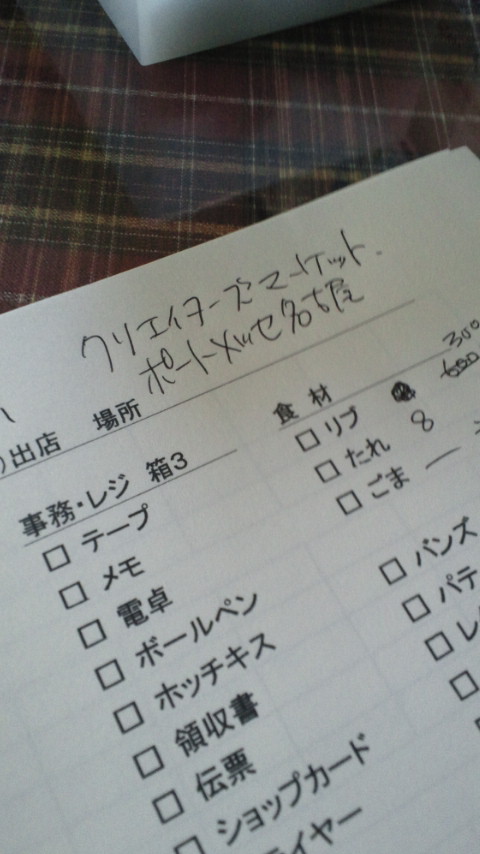 クリエイターズマーケット
ポートメッセ名古屋
出店 場所
事務・レジ 箱3
□ テープ
□ メモ
□ 電卓
□ ボールペン
□ ホッチキス
□ 領収書
□ 伝票
□ ショップカード
イヤー
食材
□ リブ
□ たれ 8
□ ごま ー
□ バンズ
□ パテ
□ レ